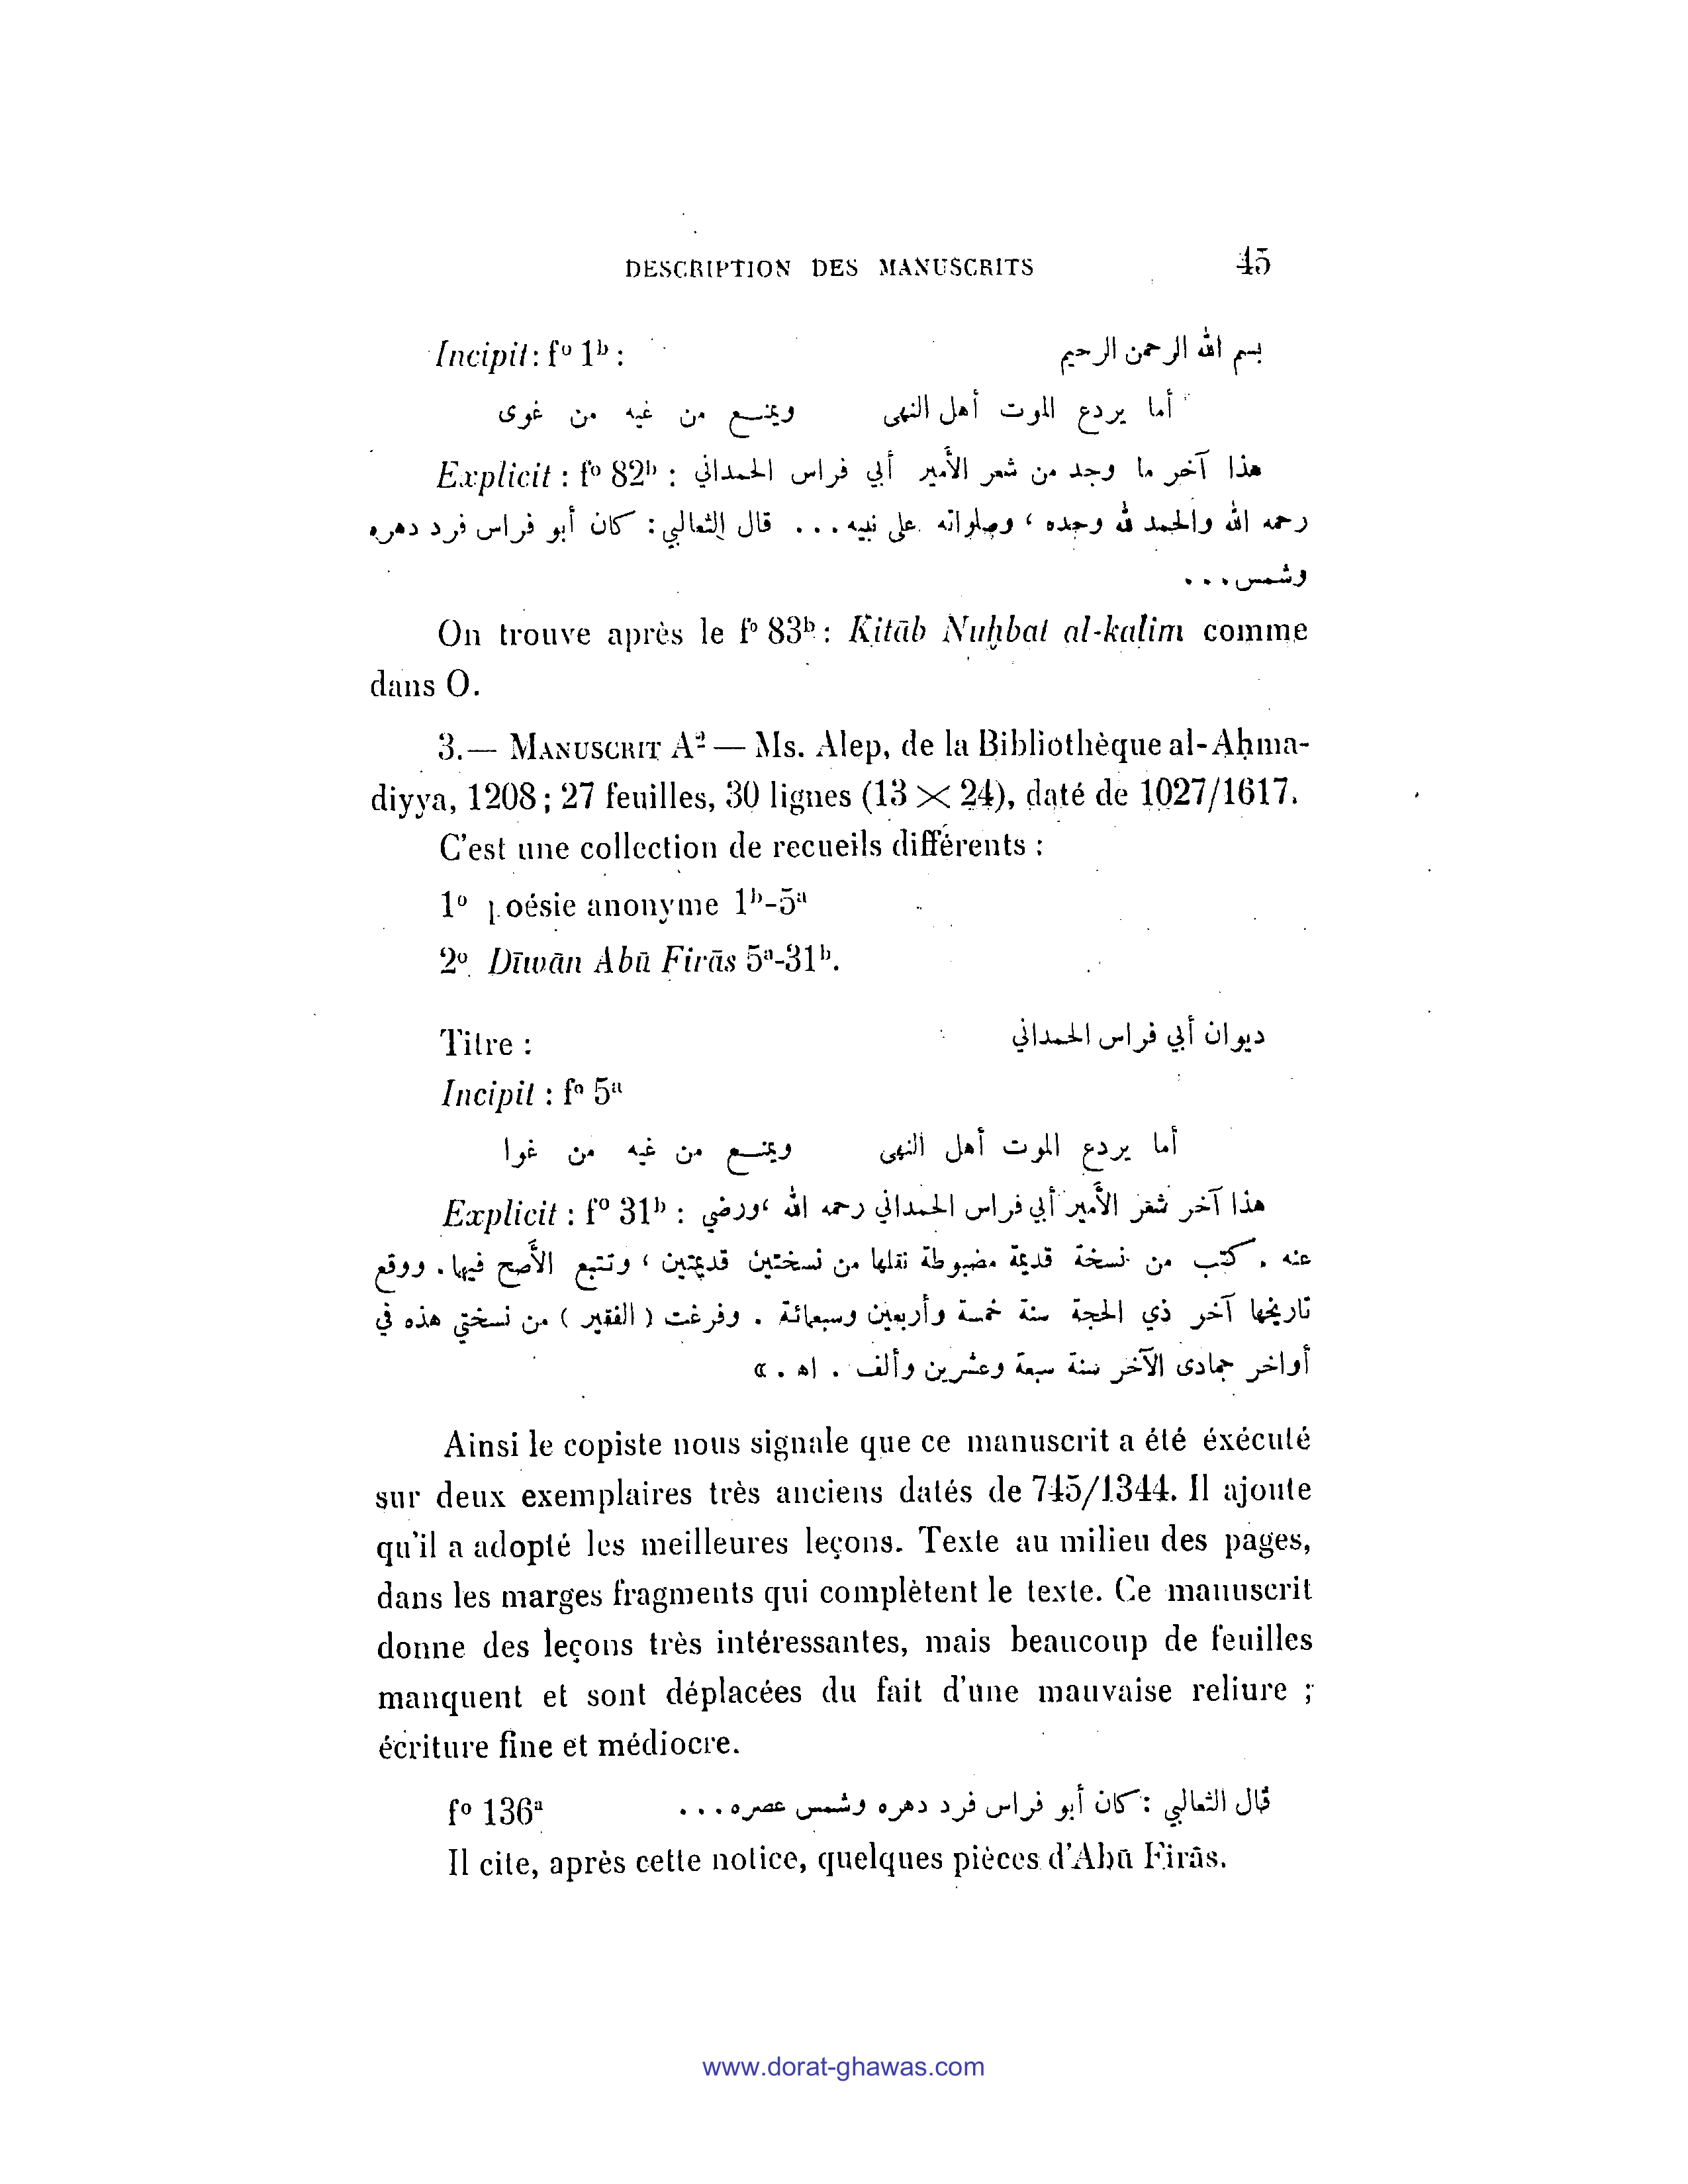 DESCRIPTION DES MANUSCRITS 45
Incipit : fº 1ᵇ : بسم الله الرحمن الرحيم
أما يردع الموت أهل النهى ويمنـع من غيه من غوى
Explicit : fº 82ᵇ : هذا آخر ما وجد من شعر الأمير أبي فراس الحمداني
رحمه الله والحمد لله وحده ، وصلواته على نبيه ... قال الثعالبي : كان أبو فراس فرد دهره
وشمس ...
On trouve après le fº 83ᵇ : Kitāb Nuḫbat al-kalim comme
dans O.
3.— MANUSCRIT A² — Ms. Alep, de la Bibliothèque al-Aḥma-
diyya, 1208 ; 27 feuilles, 30 lignes (13 × 24), daté de 1027/1617.
C'est une collection de recueils différents :
1º poésie anonyme 1ᵇ-5ᵃ
2º Dīwān Abū Firās 5ᵃ-31ᵇ.
Titre : ديوان أبي فراس الحمداني
Incipit : fº 5ᵃ
أما يردع الموت أهل النهى ويمنـع من غيه من غوا
Explicit : fº 31ᵇ : هذا آخر شعر الأمير أبي فراس الحمداني رحمه الله ، ورضي
عنه . كتب من نسخة قديمة مضبوطة نقلها من نسختين قديمتين ، وتتبع الأصح فيها . ووقع
تاريخها آخر ذي الحجة سنة خمسة وأربعين وسبعمائة . وفرغت ( الفقير ) من نسختي هذه في
أواخر جمادى الآخر سنة سبعة وعشرين وألف . اه . »
Ainsi le copiste nous signale que ce manuscrit a été éxécuté
sur deux exemplaires très anciens datés de 745/1344. Il ajoute
qu'il a adopté les meilleures leçons. Texte au milieu des pages,
dans les marges fragments qui complètent le texte. Ce manuscrit
donne des leçons très intéressantes, mais beaucoup de feuilles
manquent et sont déplacées du fait d'une mauvaise reliure ;
écriture fine et médiocre.
fº 136ᵃ قال الثعالبي : كان أبو فراس فرد دهره وشمس عصره ...
Il cite, après cette notice, quelques pièces d'Abū Firās.
www.dorat-ghawas.com